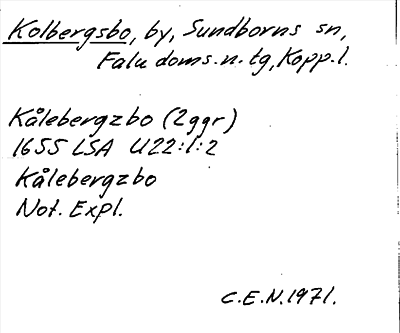 Kolbergsbo, by, Sundborns sn,
Falu doms.n.tg, Kopp.l.
Kålebergzbo (2ggr)
1655 LSA U22:1:2
Kålebergzbo
Not. Expl.
C.E.N. 1971.